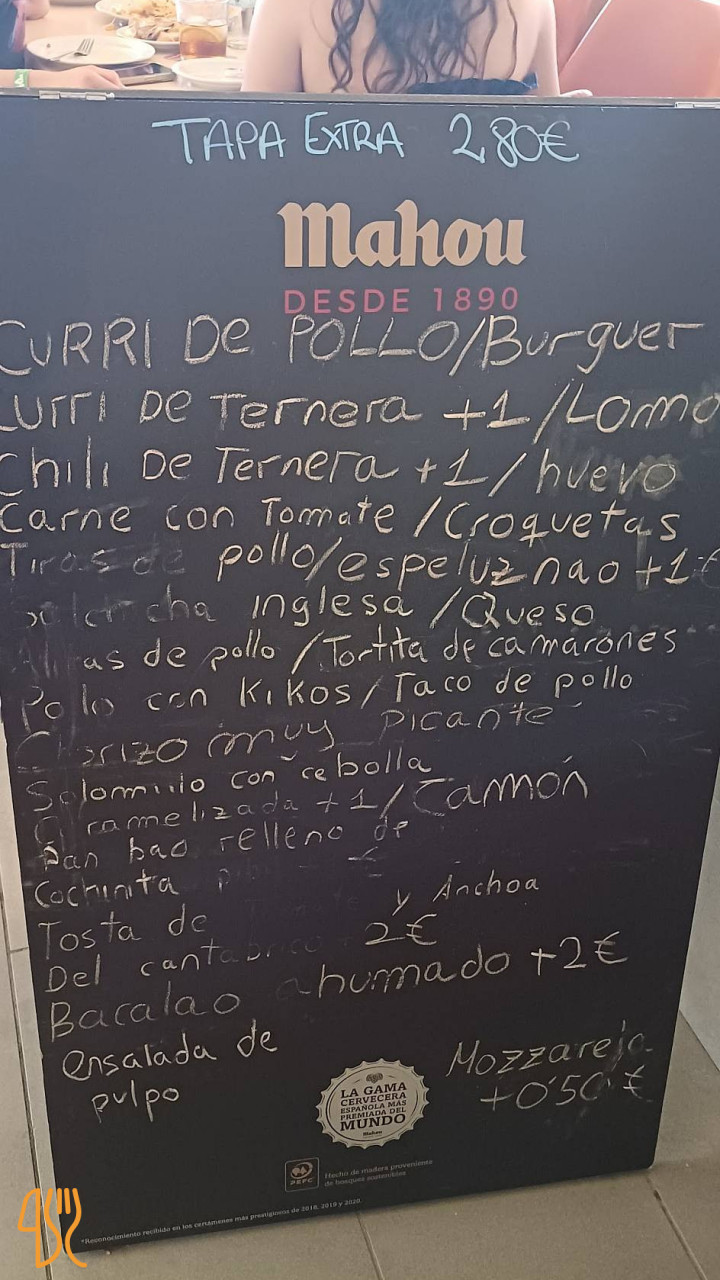 TAPA EXTRA 2,80€
Mahou
DESDE 1890
CURRI DE POLLO/Burguer
Curri DE Ternera +1/Lomo
Chili DE Ternera +1/huevo
Carne con Tomate/Croquetas
Tiras de pollo/espeluznao +1€
Salchicha inglesa/Queso
Alitas de pollo/Tortita de camarones
Pollo con Kikos/Taco de pollo
Chorizo muy picante
Solomillo con cebolla
Caramelizada +1/Jamón
Pan bao relleno de
Cochinita €
Tosta de y Anchoa
Del cantabrico 2€
Bacalao ahumado +2€
ensalada de
pulpo
Mozzarela
+0'50€
LA GAMA
CERVECERA
ESPAÑOLA MÁS
PREMIADA DEL
MUNDO
Mahou
PEFC
Hecho de madera proveniente
de bosques sostenibles
*Reconocimiento recibido en los certámenes más prestigiosos de 2018, 2019 y 2020.